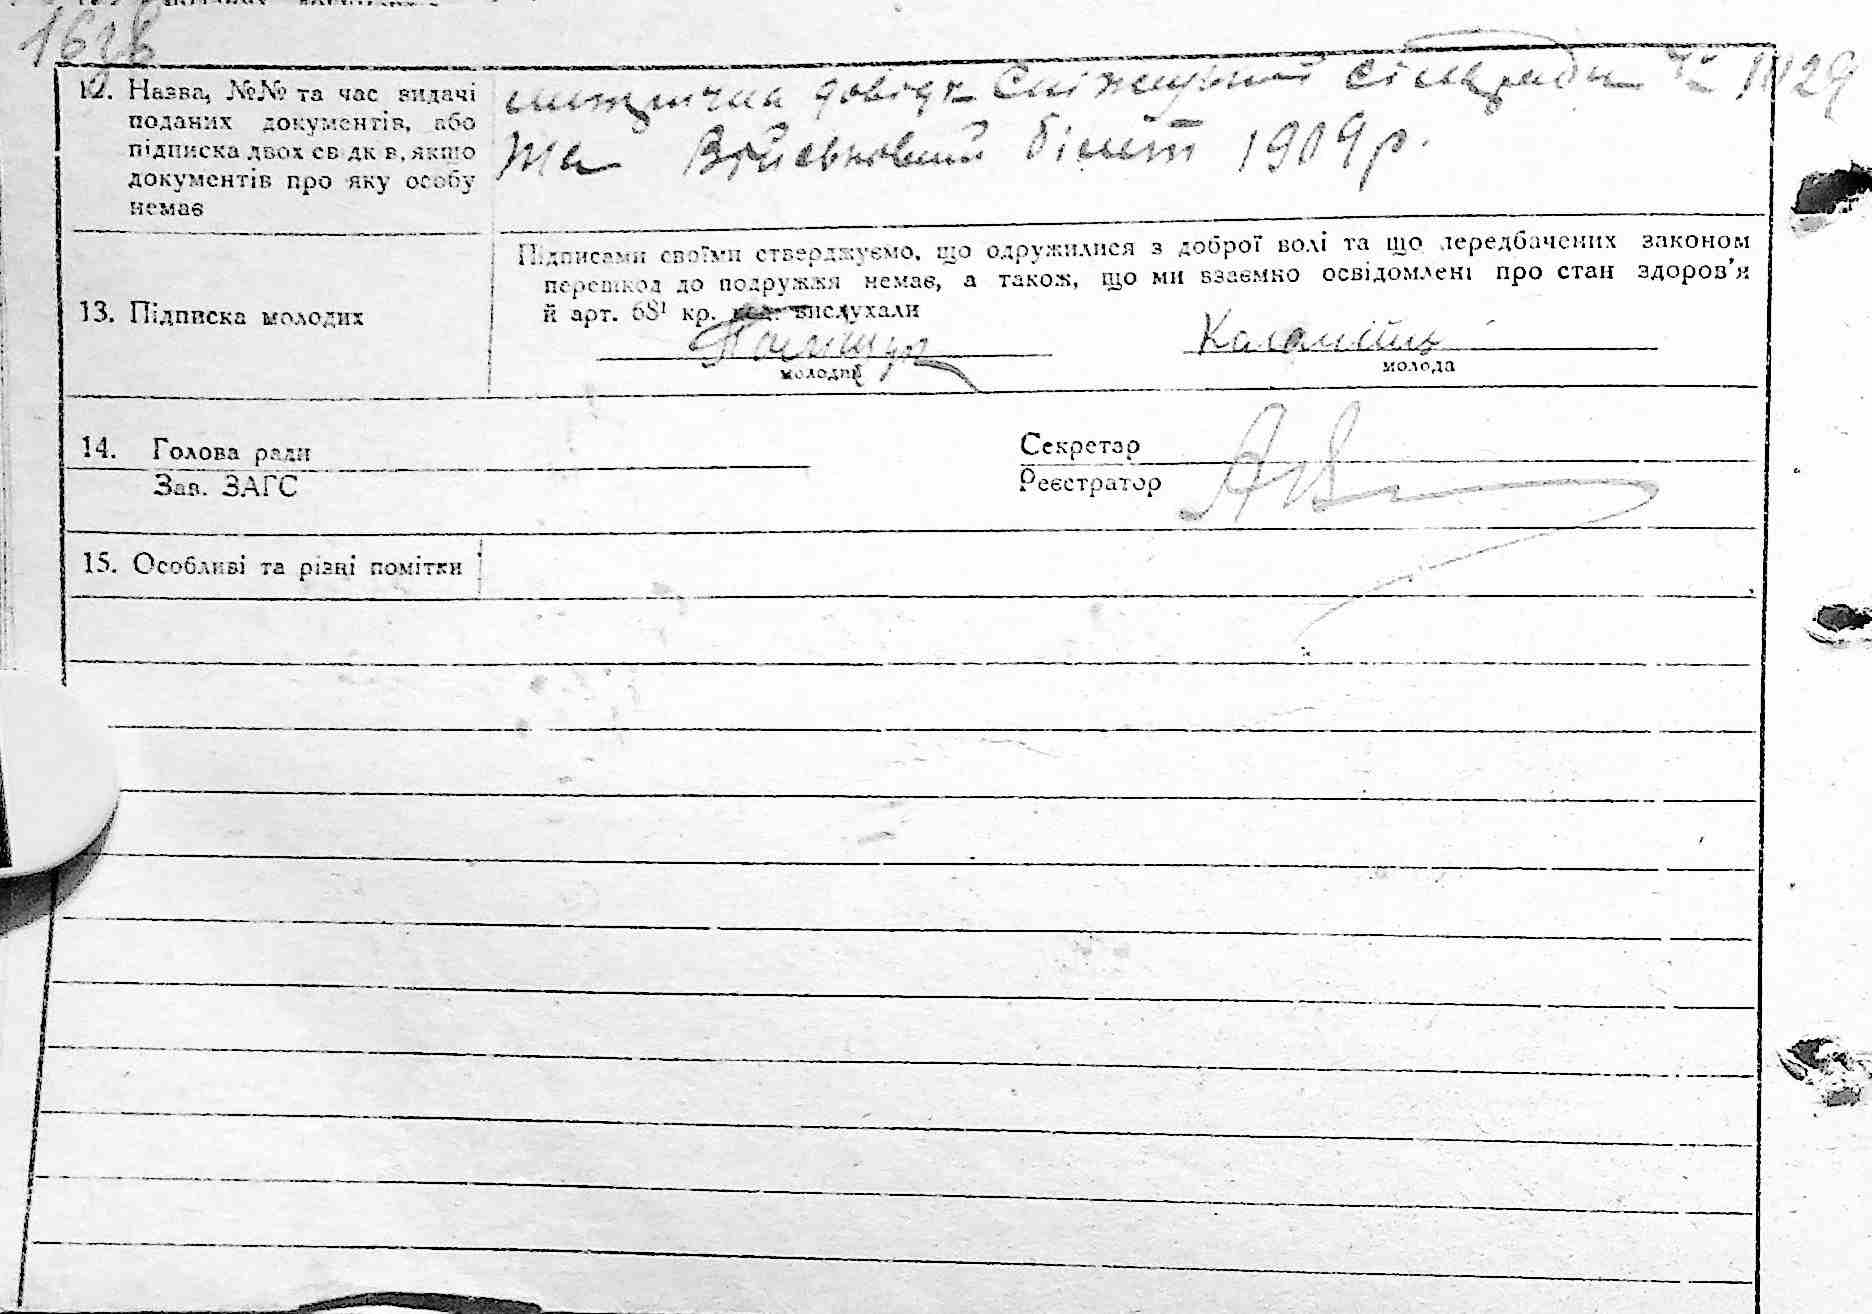 163в
12. Назва, №№ та час видачі
поданих документів, або
підписка двох св дк в, якщо
документів про яку особу
немає
довідк сільради № 1029
та Військовий білет 1909 р.
Підписами своїми стверджуємо, що одружилися з доброї волі та що передбачених законом
перешкод до подружжя немає, а також, що ми взаємно освідомлені про стан здоров'я
й арт. 68¹ кр. код. вислухали
13. Підписка молодих
молодий
молода
14. Голова ради
Секретар
Зав. ЗАГС
Реєстратор
15. Особливі та різні помітки